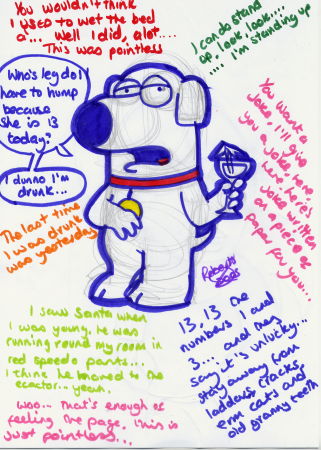 You wouldn't think
I used to wet the bed
a... Well I did, alot....
This was pointless
I can do stand
up, look, look....
.... I'm standing up
Who's leg do I
have to hump
because
She is 13
today?
I dunno I'm
drunk...
You want a
joke, I'll give
you a joke, here
here, here's a
joke written
on a piece of
paper for you...
The last time
I was drunk
was yesterday
I saw Santa when
I was young. He was
running round my room in
red speedo pants...
I think he moored to the
... yeah.
woo... That's enough of
feeling the page. This is
just pointless...
2005
13, 13 the
numbers 1 and
3... and they
say it's unlucky...
stay away from
ladders, cracks,
erm cats and
old granny teeth